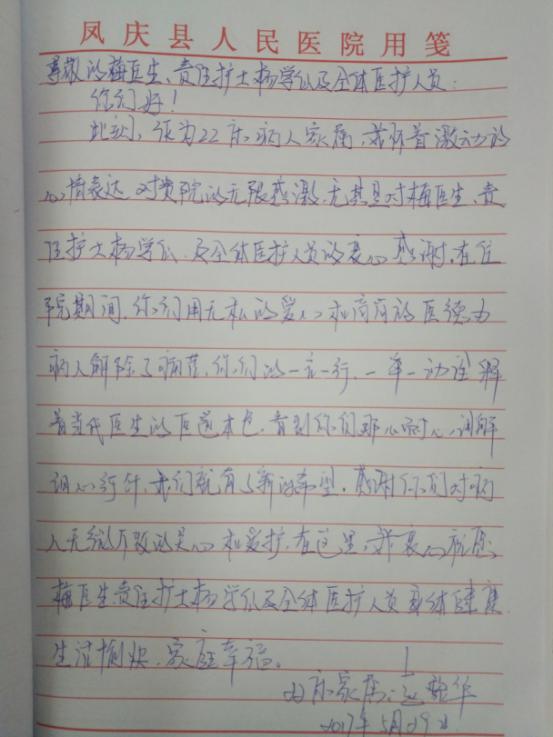 凤庆县人民医院用笺
尊敬的梅医生、责任护士杨学仙及全体医护人员：
你们好！
此刻，作为22床病人家属，我怀着激动的
心情表达对贵院的无限感激，尤其是对梅医生、责
任护士杨学仙、及全体医护人员的衷心感谢，在住
院期间，你们用无私的爱心和高尚的医德为
病人解除了病痛，你们的一言一行，一举一动诠释
着当代医生的医道本色，看到你们那心耐心讲解
细心行针，我们就有了新的希望，感谢你们对病
人无微不致的关心和爱护，在这里，我衷心祝愿
梅医生责任护士杨学仙及全体医护人员身体健康
生活愉快，家庭幸福。
床家属：华
2017年5月29日